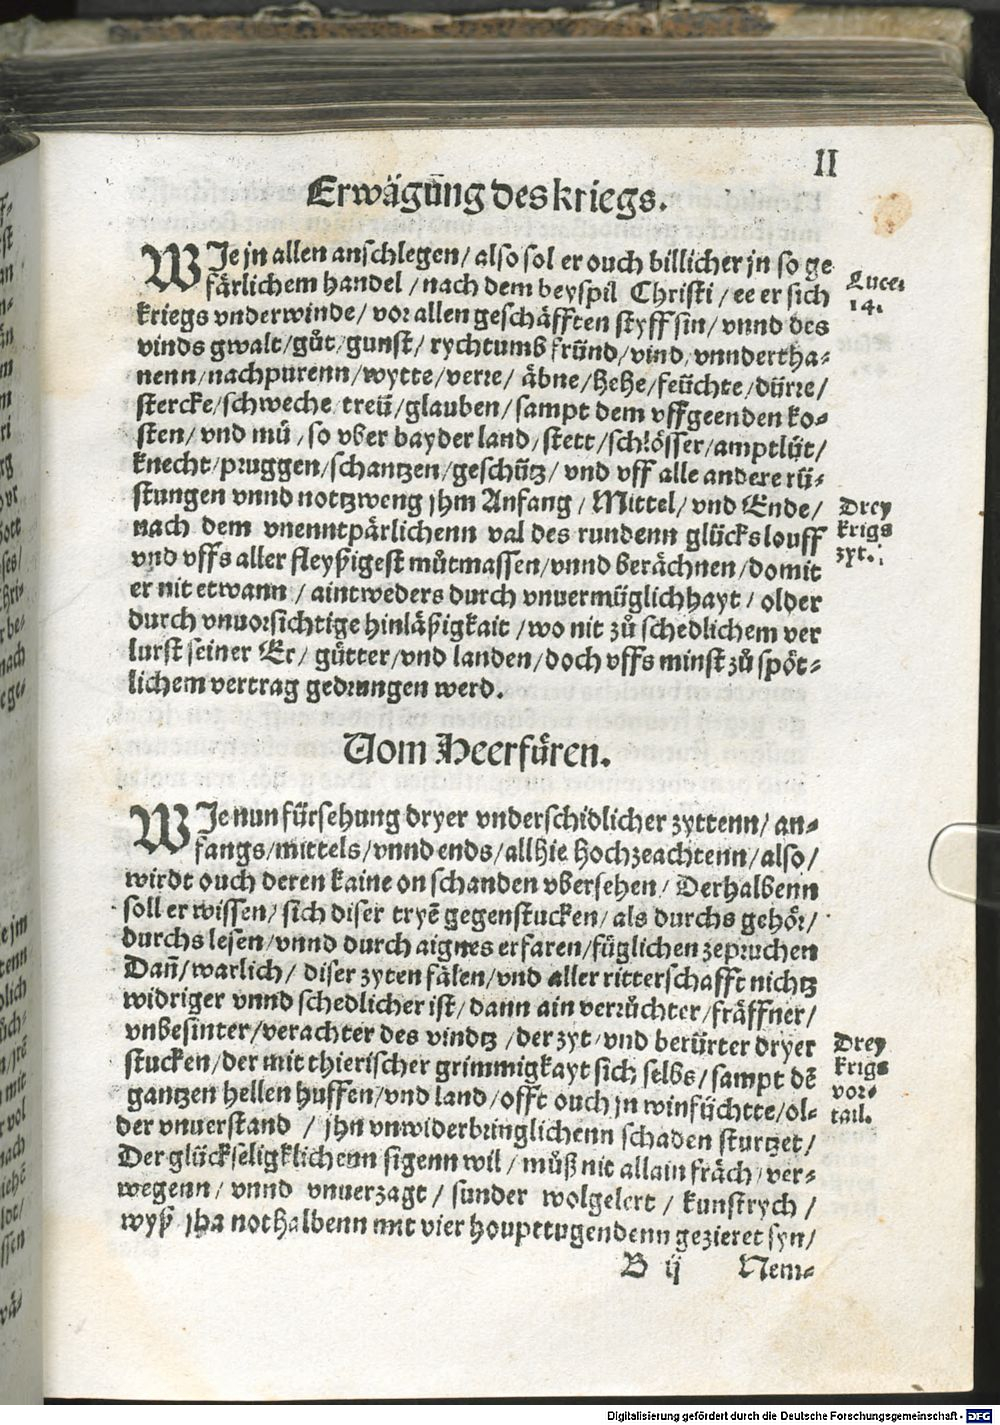 II
Erwägũng des kriegs.
WIe jn allen anschlegen/ also sol er ouch billicher jn so ge
färlichem handel /nach dem beyspil Christi/ ee er sich
kriegs vnderwinde/ vor allen geschäfften styff sin/ vnnd des
vinds gwalt/gůt/gunst/ rychtumb fründ/vind/vnndertha-
nenn/nachpurenn/wytte/verre/ äbne/hehe/feüchte/dürre/
stercke/schweche/treü/glauben/sampt dem vffgeenden ko-
sten/ vnd mů, so vber bayder land/stett/schlösser/amptlüt/
knecht/pruggen/schantzen/geschütz/ vnd vff alle andere rü-
stungen vnnd nottzweng jhm Anfang / Mittel/ vnd Ende/
nach dem vnenntpärlichenn val des rundenn glückslouff
vnd vffs aller fleyßigest můtmassen/vnnd berächnen/domit
er nit etwann / aintweders durch vnuermüglichhayt/ older
durch vnuorsichtige hinläßigkait /wo nit zů schedlichem ver
lurst seiner Er/ gütter/vnd landen/doch vffs minst zů spöt-
lichem vertrag gedrungen werd.
Luce.
14.
Drey
krigs
zyt.
Vom Heerfüren.
WIe nun fürsehung dryer vnderschidlicher zyttenn/ an-
fangs/mittels/vnnd ends/allhie hochzeachtenn/also/
wirdt ouch deren kaine on schanden vbersehen/ Derhalbenn
soll er wissen/ sich diser tryẽ gegenstucken/ als durchs gehör/
durchs lesen/vnnd durch aignes erfaren/füglichen zepruchen
Dañ/warlich/ diser zyten fälen/vnd aller ritterschafft nichtz
widriger vnnd schedlicher ist/ dann ain verrůchter/fräffner/
vnbesinter/verachter des vindtz /der zyt/vnd berürter dryer
stucken/der mit thierischer grimmigkayt sich selbs/ sampt dẽ
gantzen hellen huffen/vnd land/offt ouch jn winfüchtte/ol-
der vnuerstand / jhn vnwiderbringlichenn schaden sturtzet/
Der glückseligklichenn sigenn wil/ můß nit allain fräch/ver-
wegenn/ vnnd vnuerzagt / sunder wolgelert / kunstrych /
wyß jha nothalbenn mit vier houpttugendenn gezieret syn/
Drey
krigs
vor-
tail.
B ij Nem-
Digitalisierung gefördert durch die Deutsche Forschungsgemeinschaft - DFG